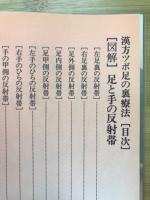 漢方ツボ足の裏療法［目次］
［図解］足と手の反射帯
左足裏の反射帯
右足裏の反射帯
足外側の反射帯
足内側の反射帯
足甲側の反射帯
左手のひらの反射帯
右手のひらの反射帯
手の甲側の反射帯